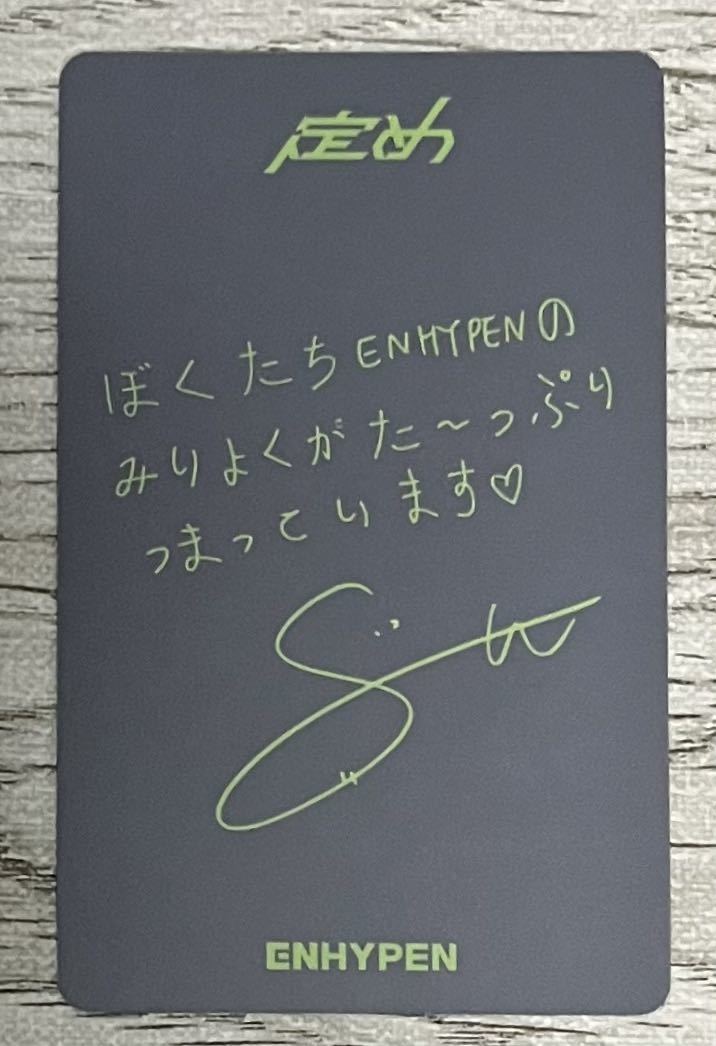 定め
ぼくたちENHYPENの
みりよくがた〜っぷり
つまっています♡
ENHYPEN